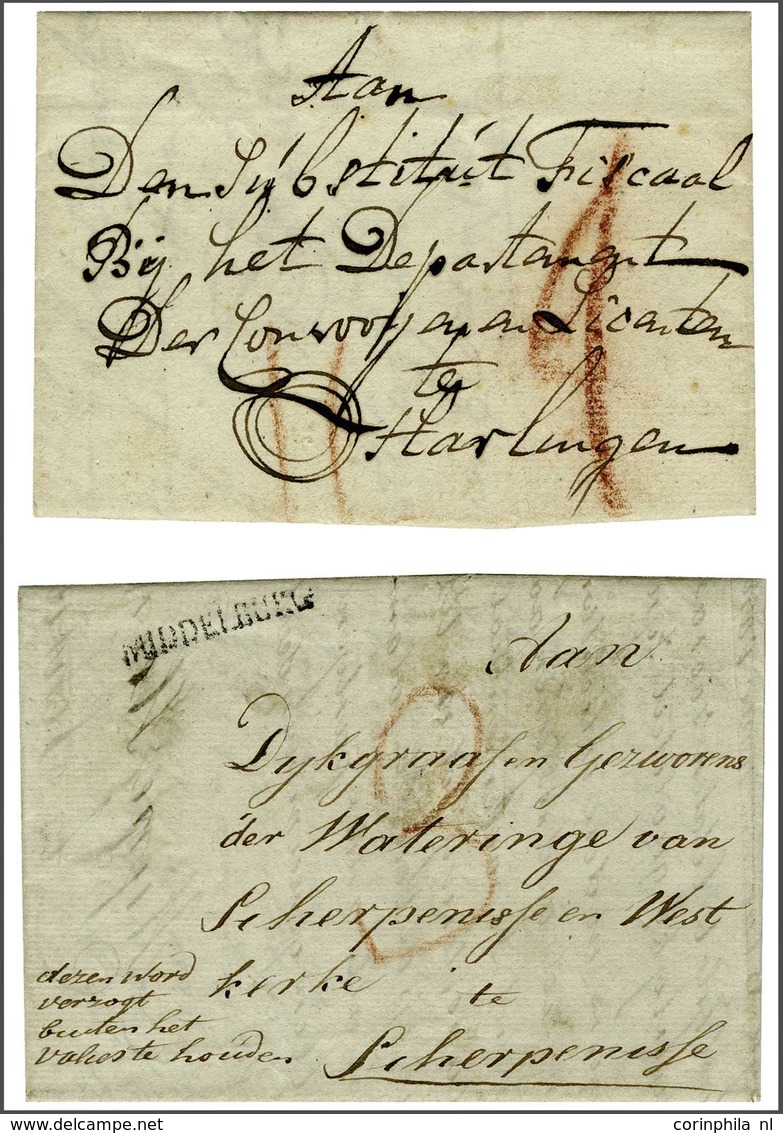 Aan
Den Súbstitút Fiscaal
Bÿ het Departament
Der Convooijen en Licenten
te
Harlingen
4
MIDDELBURG
Aan
Dykgraaf en Gezworens
der Wateringe van
Scherpenisse en West
kerke te
Scherpenisse
3
dezen word
verzogt
buiten het
te houden
© www.delcampe.net
corinphila nl